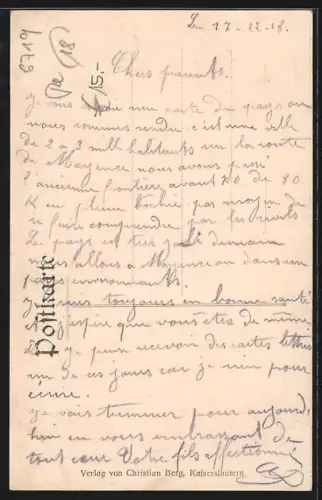 6719
Le 17-12-18.
18
15.-
Chers parents.
je vous une carte du pays ou
nous sommes rendu c'est une ville
de 2 a 3 mill habitants sur la route
de Mayence nous avons passé
l'ancienne frontière avant 70 de 80
K en pleine Bochie. pas moyen de
se faire comprendre par les
Le pays est très joli demain
nous allons a Mayence ou dans un
pays environnants.
je suis toujours en bonne santé
et j'espère que vous êtes de même
je puis recevoir des cartes lettres
un de ces jours car je n'ai rien pour
écrire.
je vais terminer pour aujourd,
hui en vous embrassant de
tout cœur Votre fils affectionné
Postkarte
Verlag von Christian Berg, Kaiserslautern.